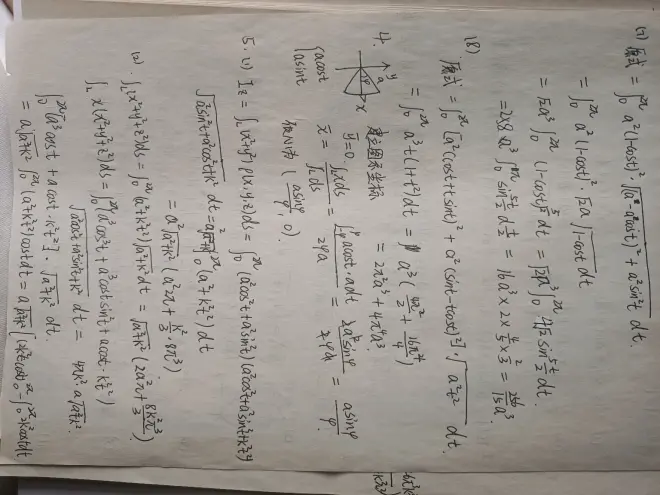 (7) 原式 = ∫₀^{2π} a²(1-cost)²·√(a²(1-cost)²+a²sin²t) dt.
= ∫₀^{2π} a²(1-cost)²·√2 a √(1-cost) dt
= √2a³ ∫₀^{2π} (1-cost)^{5/2} dt
= 16a³×2×4/5×2/3 = 256/15 a³
(8) 原式 = ∫₀^{2π} [a²(cost+tsint)²+a²(sint-tcost)²]·√(a²t²) dt.
= ∫₀^{2π} a³t(1+t²)dt = a³(4π²/2+16π⁴/4)
= 2π²a³+4π⁴a³
4.
y
a
φ
x
建立图示坐标
ȳ=0.
{acost
asint
x̄ = ∫_L xds / ∫_L ds
= 2a²sinφ / 2φa = asinφ/φ.
(asinφ/φ, 0).
5. (1) I_z = ∫_L (x²+y²)ρ(x,y,z)ds = ∫₀^{2π} (a²cos²t+a²sin²t)(a²cos²t+a²sin²t+k²t²)
√(a²sin²t+a²cos²t+k²) dt = a²√(a²+k²) ∫₀^{2π} (a²+k²t²)dt
= a²√(a²+k²) (a²2π+k²/3·8π³)
(2). ∫_L (x²+y²+z²)ds = ∫₀^{2π} (a²+k²t²)√(a²+k²) dt = √(a²+k²) (2a²π+8k²π³/3)
∫_L x(x²+y²+z²)ds = ∫₀^{2π} (a³cos³t+a³cost sin²t+acost·k²t²)
√(a²cos²t+a²sin²t+k²) dt = 4πk²·a√(a²+k²).
∫₀^{2π} [a³cost+acost·k²t²]·√(a²+k²) dt.
= a√(a²+k²) ∫₀^{2π} (a²+k²t²)costdt = a√(a²+k²)